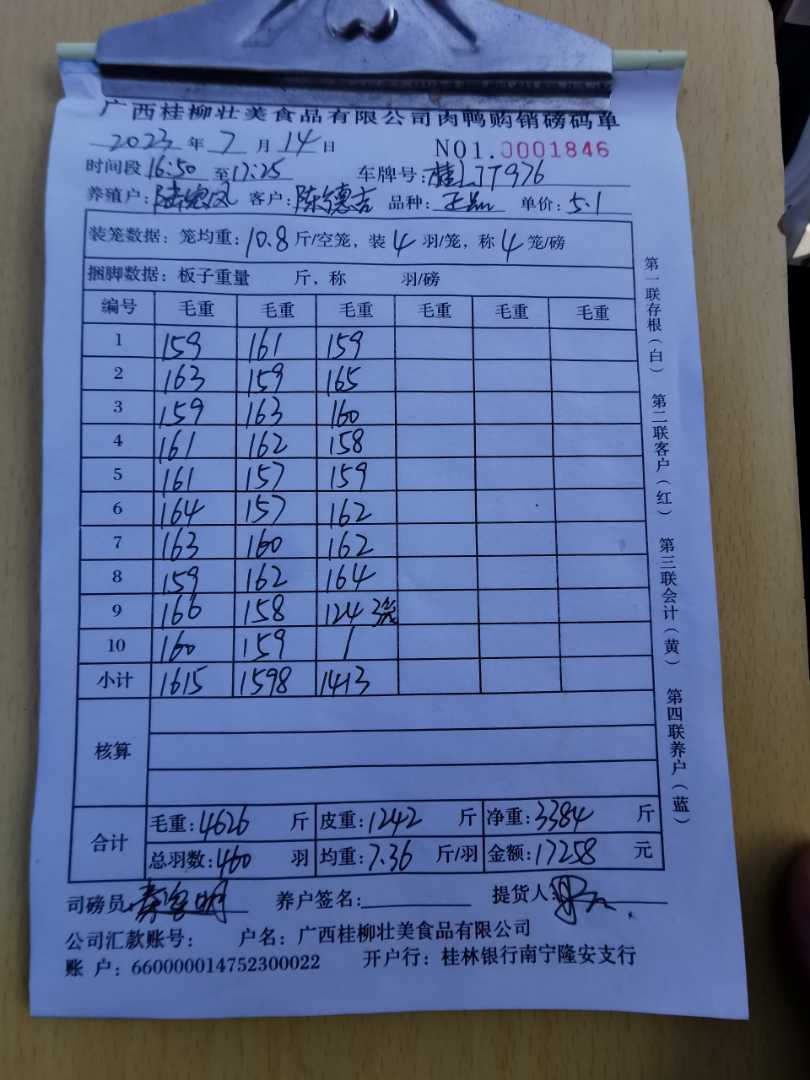 广西桂柳壮美食品有限公司肉鸭购销磅码单
2023 年 7 月 14 日 NO1.0001846
时间段 16:50 至 17:25 车牌号: 桂LJT976
养殖户: 陆 凤 客户: 陈德吉 品种: 单价: 5.1
装笼数据: 笼均重: 10.8 斤/空笼, 装 4 羽/笼, 称 4 笼/磅
捆脚数据: 板子重量 斤, 称 羽/磅
编号 毛重 毛重 毛重 毛重 毛重 毛重
1 159 161 159
2 163 159 165
3 159 163 160
4 161 162 158
5 161 157 159
6 164 157 162
7 163 160 162
8 159 162 164
9 166 158 124 3笼
10 160 159 /
小计 1615 1598 1413
核算
合计 毛重: 4626 斤 皮重: 1242 斤 净重: 3384 斤
总羽数: 460 羽 均重: 7.36 斤/羽 金额: 17258 元
司磅员: 养户签名: 提货人:
公司汇款账号: 户名: 广西桂柳壮美食品有限公司
账 户: 660000014752300022 开户行: 桂林银行南宁隆安支行
第一联存根(白) 第二联客户(红) 第三联会计(黄) 第四联养户(蓝)